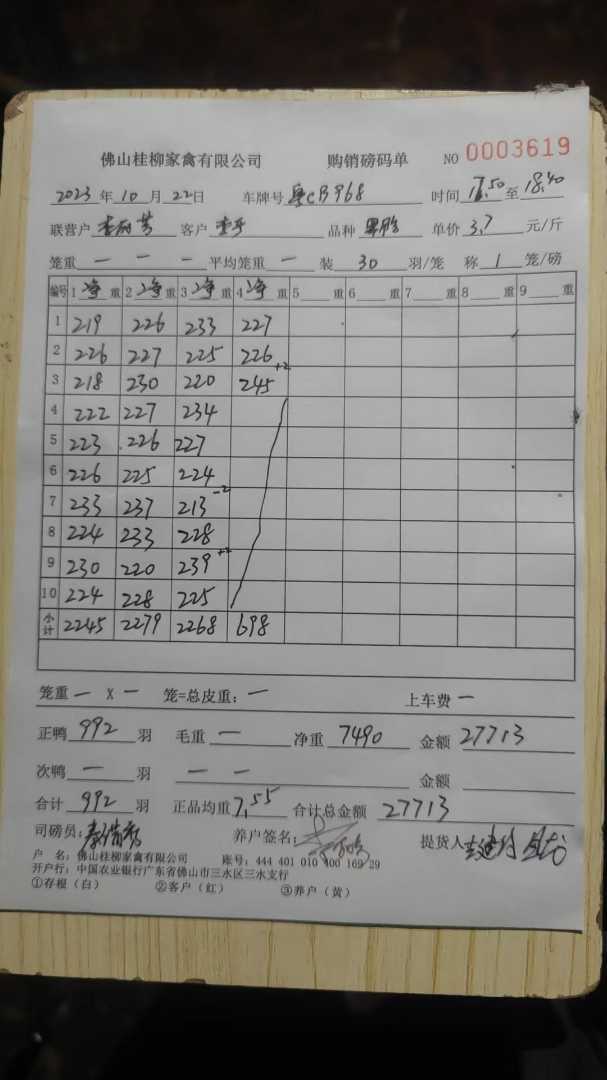 佛山桂柳家禽有限公司 购销磅码单 NO 0003619
2023年10月22日 车牌号 粤CB968 时间 17.50 至 18.40
联营户 客户 品种 单价 3.7 元/斤
笼重 — — — 平均笼重 — 装 30 羽/笼 称 1 笼/磅
编号 1 净重 2 净重 3 净重 4 净重 5 重 6 重 7 重 8 重 9 重
1 219 226 233 227
2 226 227 225 226
3 218 230 220 245 +2
4 222 227 234
5 223 226 227
6 226 225 224
7 233 237 213 -2
8 224 233 228
9 230 220 239 +2
10 224 228 225
小计 2245 2279 2268 698
笼重 — X — 笼=总皮重: — 上车费 —
正鸭 992 羽 毛重 — 净重 7490 金额 27713
次鸭 — 羽 — — 金额
合计 992 羽 正品均重 7.55 合计总金额 27713
司磅员: 养户签名: 提货人
户 名: 佛山桂柳家禽有限公司 账号: 444 401 010 400 169 29
开户行: 中国农业银行广东省佛山市三水区三水支行
①存根(白) ②客户(红) ③养户(黄)